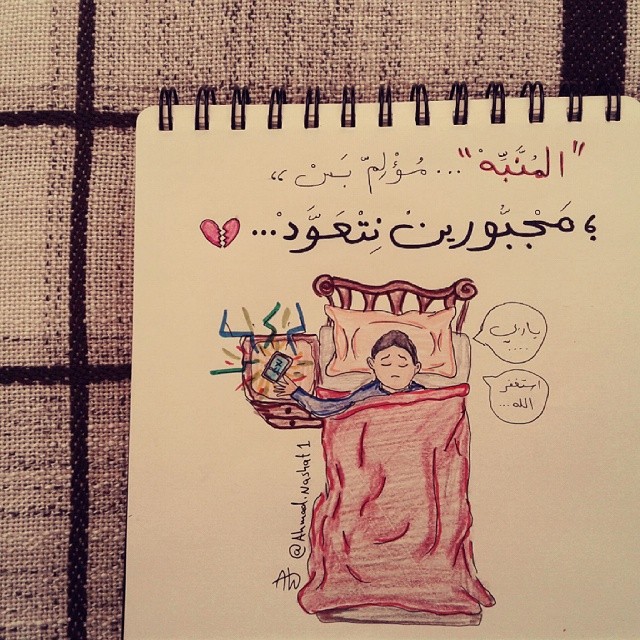 "المُنَبِّهْ"... مُؤْلِمّ بَسْ،،
؛ مَجْبُورينْ نِتْعَوَّدْ...
ياربي
....
استغفر
الله...
@Ahmad.Nashat1